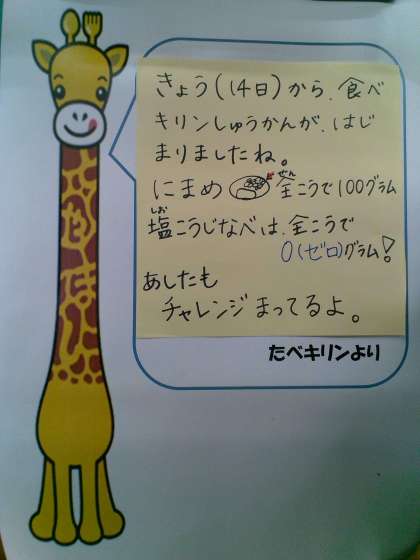 きょう(14日)から、食べ
キリンしゅうかんが、はじ
まりましたね。
にまめ 全こうで100グラム
ぜん
塩こうじなべは、全こうで
しお
0(ゼロ)グラム!
あしたも
チャレンジまってるよ。
たべキリンより